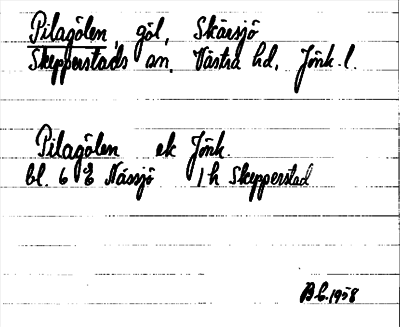 Pilagölen, göl, Skärsjö
Skepperstads sn, Västra hd, Jönk. l.
Pilagölen ek Jönk.
bl. 6 Nässjö 1 h Skepperstad
B.L. 1958